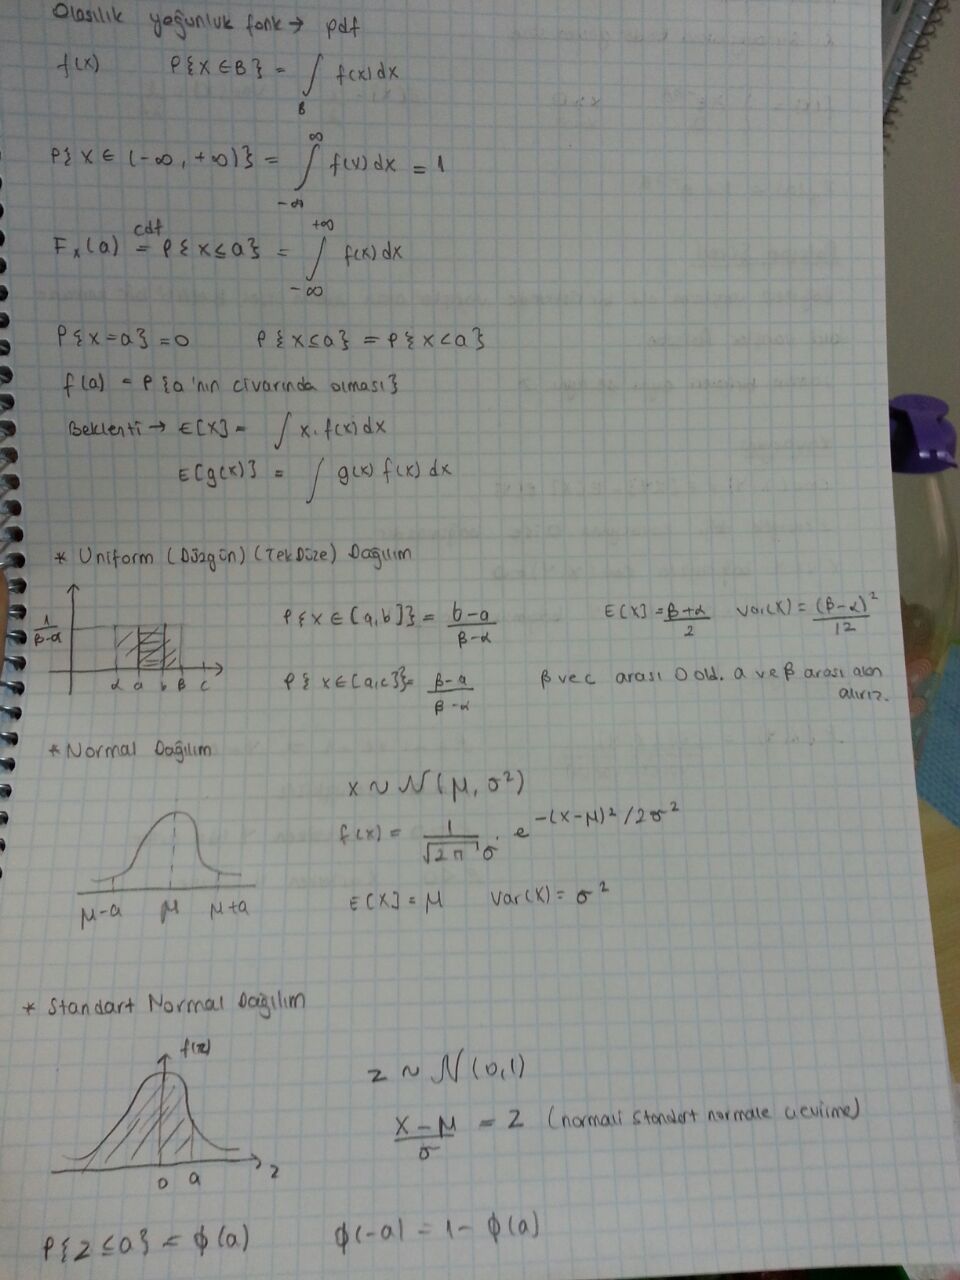 Olasılık yoğunluk fonk → pdf
f(x) P{X ∈ B} = ∫_B f(x) dx
P{X ∈ (-∞, +∞)} = ∫_{-∞}^{∞} f(x) dx = 1
F_x(a) =^{cdf} P{X ≤ a} = ∫_{-∞}^{+∞} f(x) dx
P{X = a} = 0 P{X ≤ a} = P{X < a}
f(a) = P{a'nın civarında olması}
Beklenti → E[X] = ∫ x. f(x) dx
E[g(x)] = ∫ g(x) f(x) dx
* Uniform (Düzgün) (Tek Düze) Dağılım
1/(β-α) α a b β c
P{X ∈ [a,b]} = (b-a)/(β-α) E[X] = (β+α)/2 var(X) = (β-α)²/12
P{X ∈ [a,c]} = (β-a)/(β-α) β ve c arası 0 old. a ve β arası alan
alırız.
* Normal Dağılım
X ~ N(μ, σ²)
f(x) = 1/(√2π σ) . e^{-(x-μ)²/2σ²}
μ-a μ μ+a
E[X] = μ var(X) = σ²
* Standart Normal Dağılım
f(z)
0 a z
z ~ N(0,1)
(X-μ)/σ = Z (normali standart normale çevirme)
P{Z ≤ a} = φ(a) φ(-a) = 1 - φ(a)